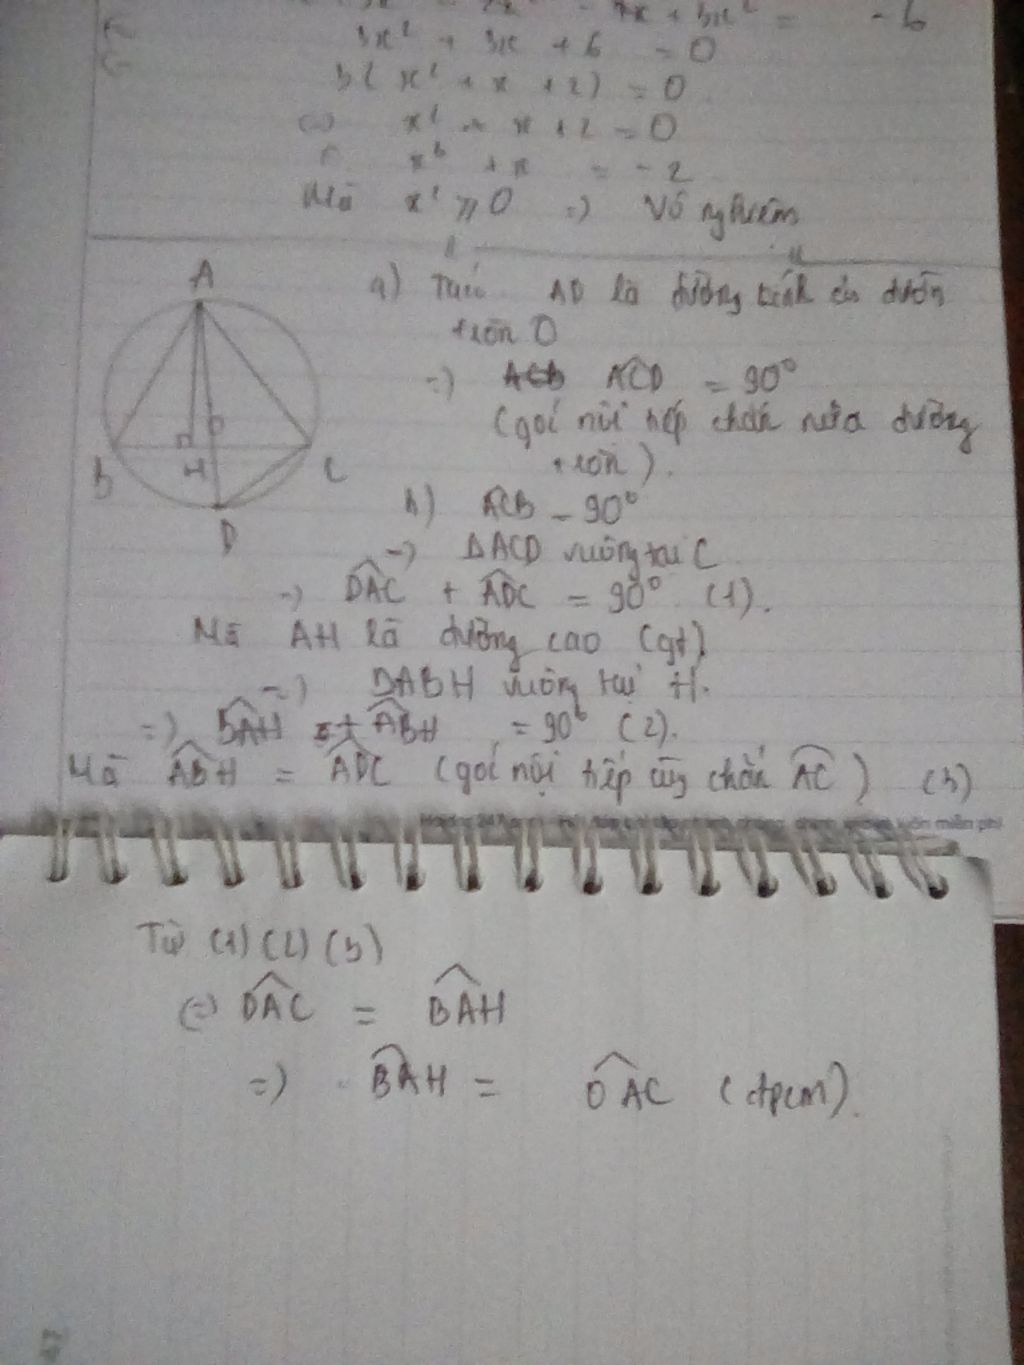 - 7x + 3x² = - 6
3x² + 3x + 6 = 0
3(x² + x + 2) = 0
(=) x² + x + 2 = 0
x² + x = - 2
Mà x² ≥ 0 =) Vô nghiệm
A
B
C
D
H
O
a) AD là đường kính đườn
tròn O
=) ACD = 90°
(gói nội tiếp chắn nửa đường
tròn).
b) ACB = 90°
=) ΔACD vuông tại C
=) DAC + ADC = 90° (1).
Mà AH là đường cao (gt)
=) ΔABH vuông tại H.
=) BAH + ABH = 90° (2).
Mà ABH = ADC (gói nội tiếp cùng chắn AC) (3)
Từ (1) (2) (3)
(=) DAC = BAH
=) BAH = OAC (đpcm).